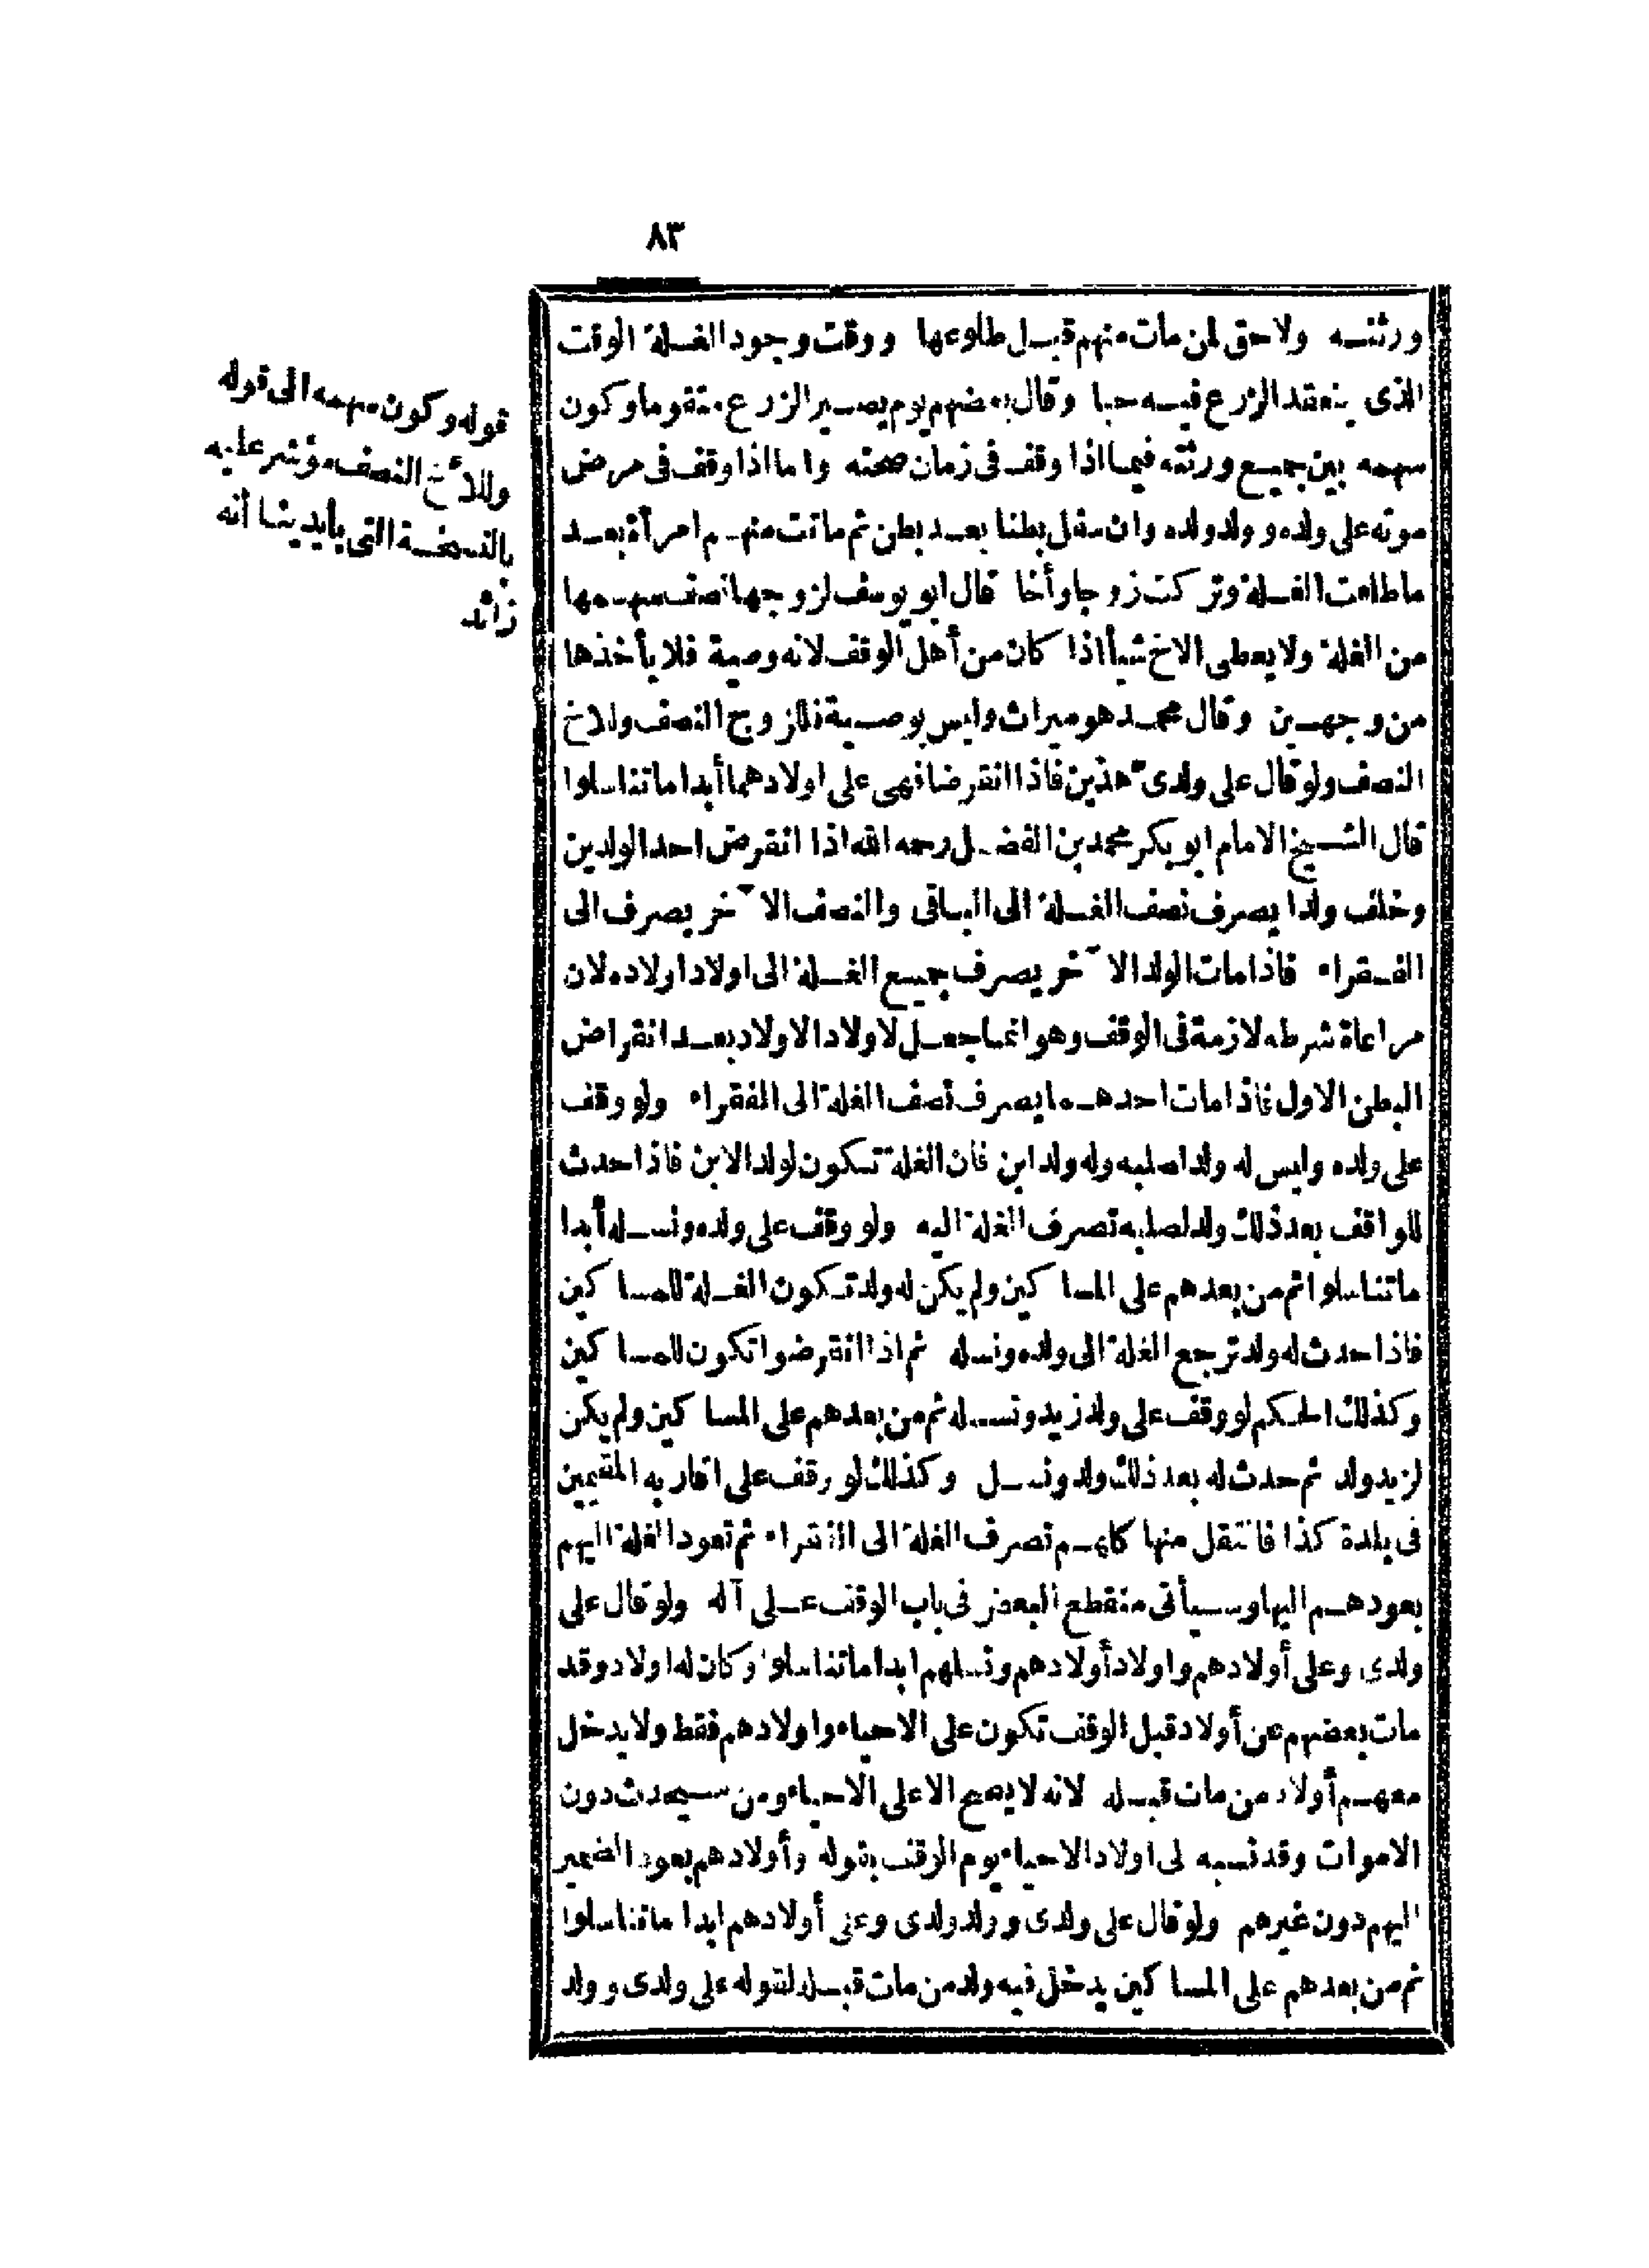 ٨٣
ورثته ولا حق لمن مات منهم قبل طلوعها ووقت وجود الغلة الوقت
الذى ينعقد الزرع فيه حبا وقال بعضهم يوم يصير الزرع متقوما وكون
سهمه بين جميع ورثته فيما اذا وقف فى زمان صحته واما اذا وقف فى مرض
موته على ولده وولد ولده وان سفل بطنا بعد بطن ثم ماتت منهم امرأة بعد
ما طلعت الغلة وتركت زوجا وأخا قال ابو يوسف لزوجها نصف سهمها
من الغلة ولا يعطى الاخ شيأ اذا كان من أهل الوقف لانه وصية فلا يأخذها
من وجهين وقال محمد هو ميراث وليس بوصية فللزوج النصف وللاخ
النصف ولو قال على ولدىّ هذين فاذا انقرضا فهى على اولادهما أبدا ما تناسلوا
قال الشيخ الامام ابو بكر محمد بن الفضل رحمه الله اذا انقرض احد الولدين
وخلف ولدا يصرف نصف الغلة الى الباقى والنصف الآخر يصرف الى
الفقراء فاذا مات الولد الآخر يصرف جميع الغلة الى اولاد اولاده لان
مراعاة شرطه لازمة فى الوقف وهو انما جعل لاولاد الاولاد بعد انقراض
البطن الاول فاذا مات احدهما يصرف نصف الغلة الى الفقراء ولو وقف
على ولده وليس له ولد لصلبه وله ولد ابن فان الغلة تكون لولد الابن فاذا حدث
للواقف بعد ذلك ولد لصلبه تصرف الغلة اليه ولو وقف على ولده ونسله أبدا
ما تناسلوا ثم من بعدهم على المساكين ولم يكن له ولد تكون الغلة للمساكين
فاذا حدث له ولد ترجع الغلة الى ولده ونسله ثم اذا انقرضوا تكون للمساكين
وكذلك الحكم لو وقف على ولد زيد ونسله ثم من بعدهم على المساكين ولم يكن
لزيد ولد ثم حدث له بعد ذلك ولد ونسل وكذلك لو وقف على اقاربه المقيمين
فى بلدة كذا فانتقل منها كلهم تصرف الغلة الى الفقراء ثم تعود الغلة اليهم
بعودهم اليها وسيأتى منقطع البعض فى باب الوقف على آله ولو قال على
ولدى وعلى أولادهم واولاد أولادهم ونسلهم ابدا ما تناسلوا وكان له اولاد وقد
مات بعضهم عن أولاد قبل الوقف تكون على الاحياء واولادهم فقط ولا يدخل
معهم أولاد من مات قبله لانه لا يصح الا على الاحياء ومن سيحدث دون
الاموات وقد نسبه لى اولاد الاحياء يوم الوقف بقوله وأولادهم بعود الضمير
اليهم دون غيرهم ولو قال على ولدى وولد ولدى وعلى أولادهم ابدا ما تناسلوا
ثم من بعدهم على المساكين يدخل فيه ولد من مات قبله لقوله على ولدى وولد
قوله وكون سهمه الى قوله
وللأخ النصف مؤشر عليه
بالنسخة التى بأيدينا أنه
زائد